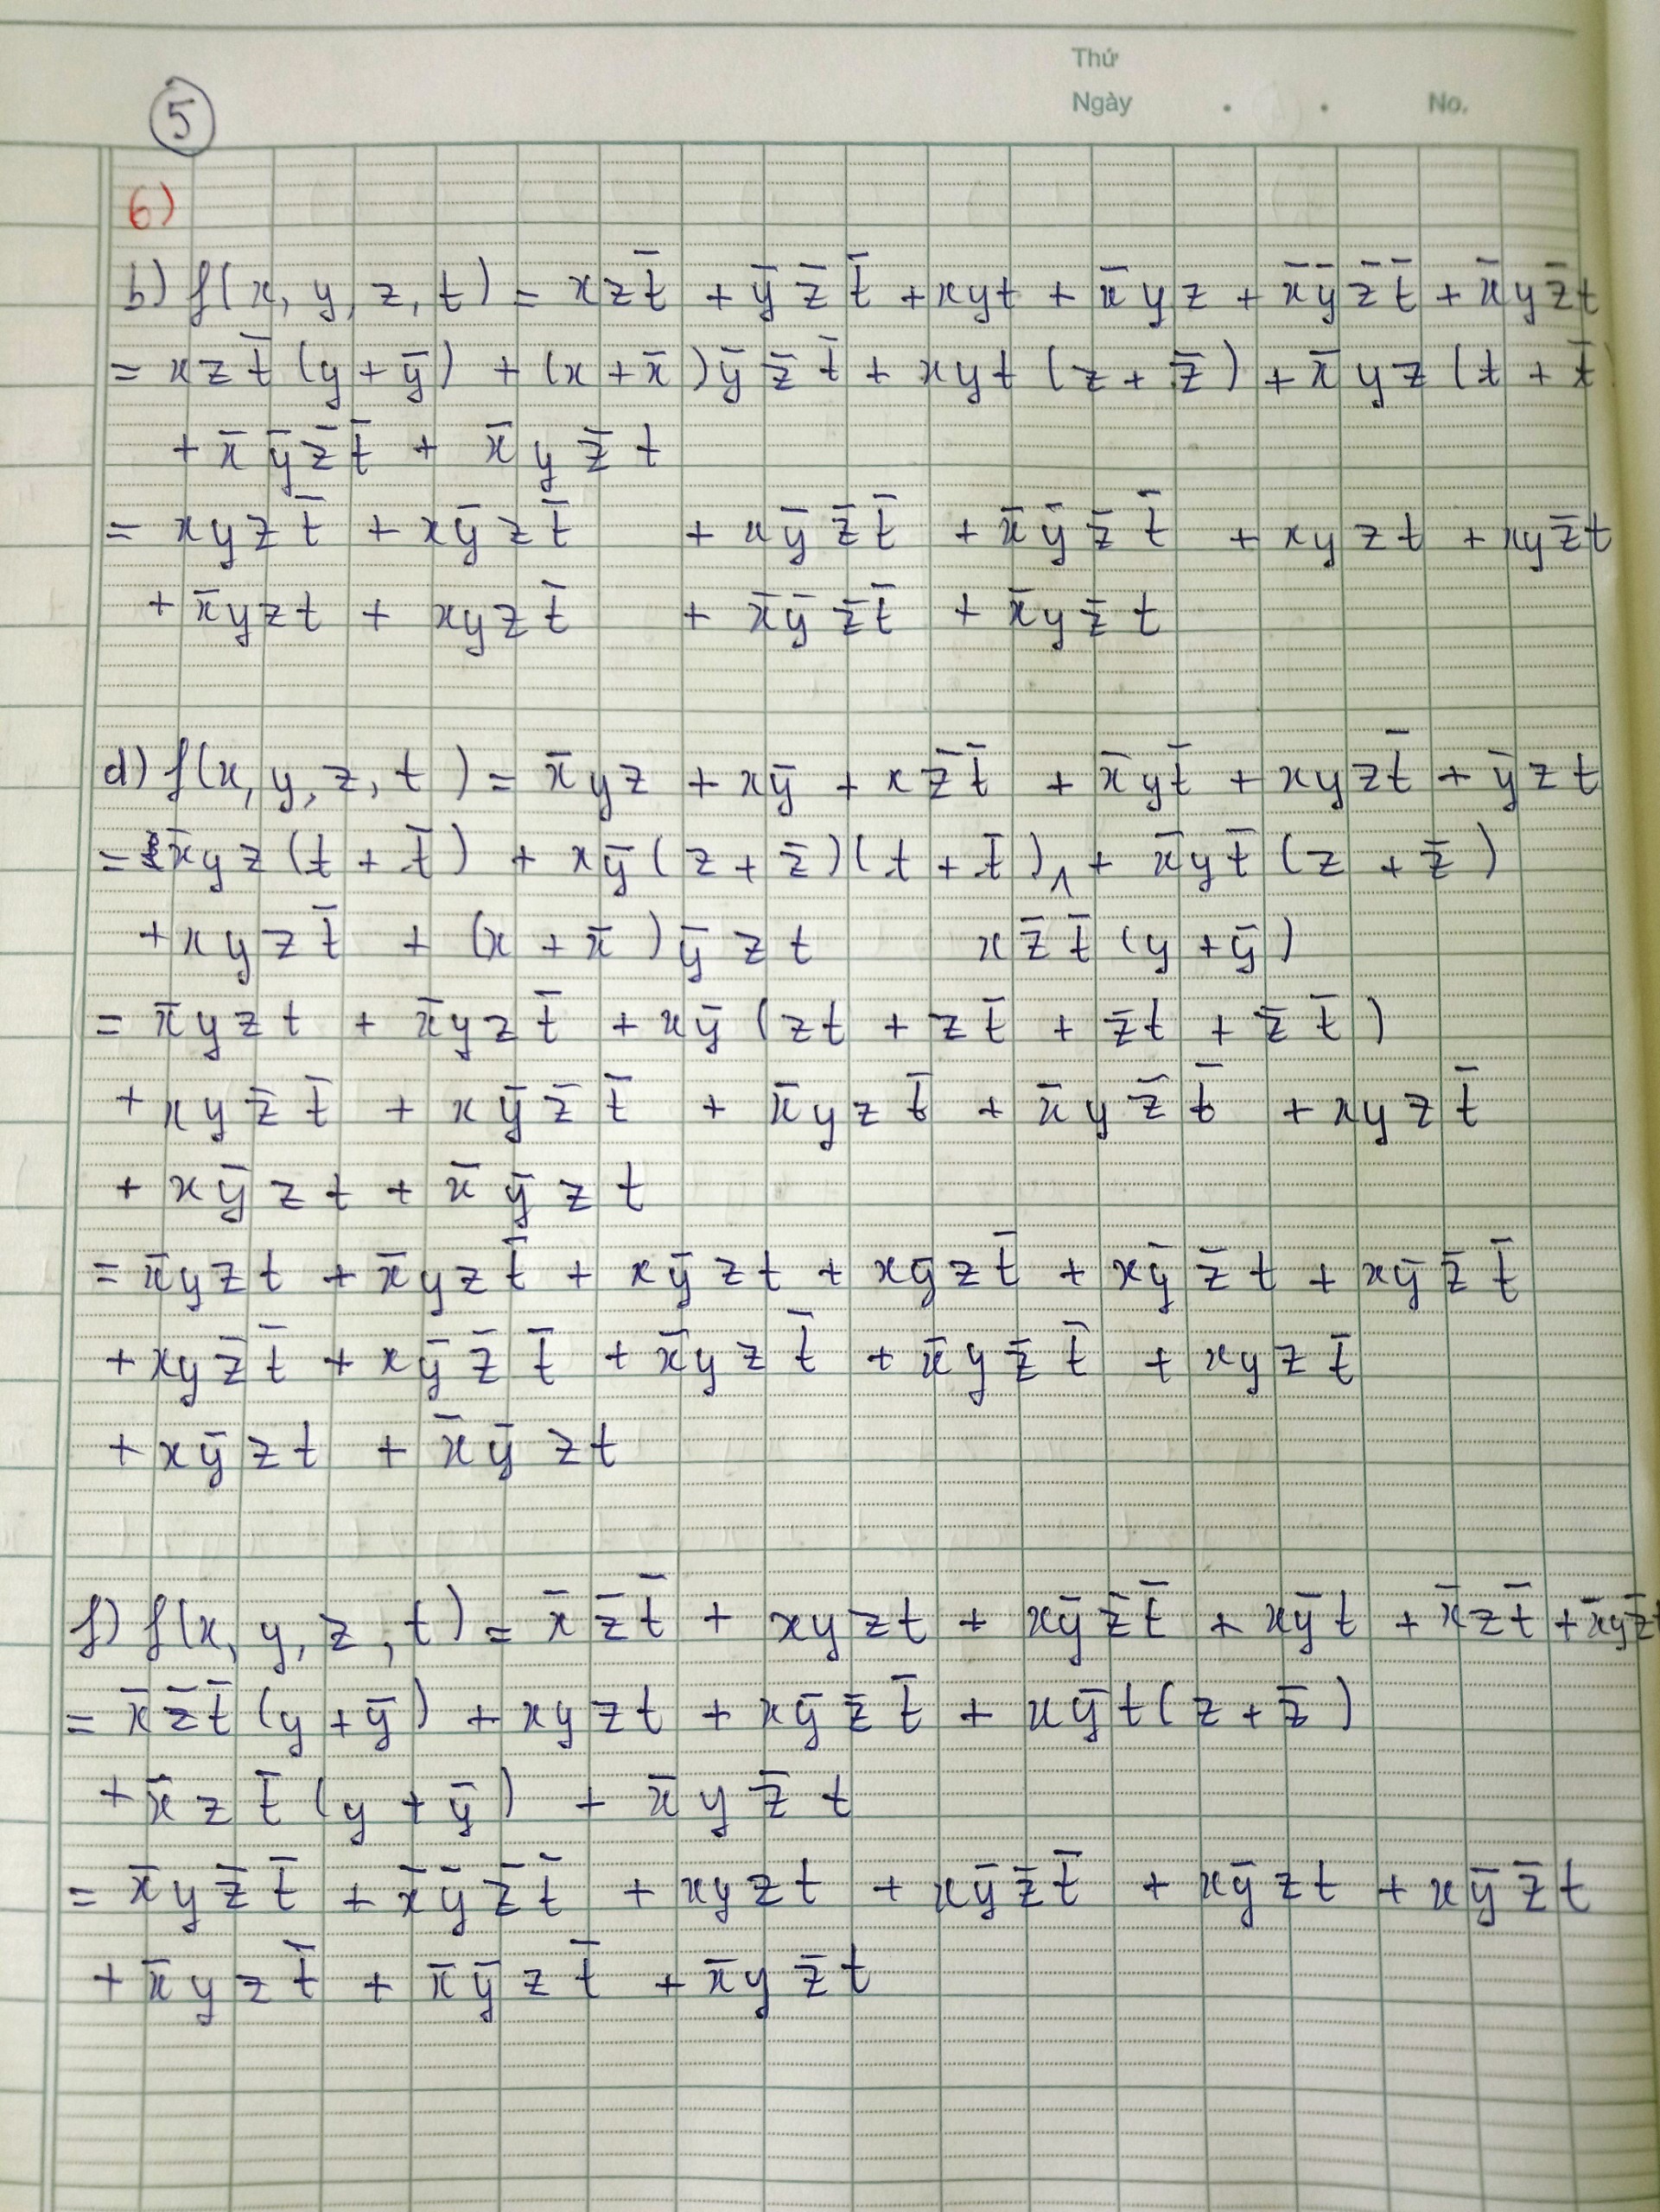 Thứ
Ngày . . No.
5
6)
b) f(x, y, z, t) = xzt̄ + ȳz̄t̄ + xyt + x̄yz + x̄ȳz̄t̄ + x̄yz̄t
= xzt̄(y+ȳ) + (x+x̄)ȳz̄t̄ + xyt(z+z̄) + x̄yz(t+t̄)
+ x̄ȳz̄t̄ + x̄yz̄t
= xyzt̄ + xȳzt̄ + xȳz̄t̄ + x̄ȳz̄t̄ + xyzt + xyz̄t
+ x̄yzt + xyzt̄ + x̄ȳz̄t̄ + x̄yz̄t
d) f(x, y, z, t) = x̄yz + xȳ + xz̄t̄ + x̄yt̄ + xyzt̄ + ȳzt
= x̄yz(t+t̄) + xȳ(z+z̄)(t+t̄) + x̄yt̄(z+z̄)
+ xyzt̄ + (x+x̄)ȳzt xz̄t̄(y+ȳ)
= x̄yzt + x̄yzt̄ + xȳ(zt + zt̄ + z̄t + z̄t̄)
+ xyz̄t̄ + xȳz̄t̄ + x̄yzt̄ + x̄yz̄t̄ + xyzt̄
+ xȳzt + x̄ȳzt
= x̄yzt + x̄yzt̄ + xȳzt + xȳzt̄ + xȳz̄t + xȳz̄t̄
+ xyz̄t̄ + xȳz̄t̄ + x̄yzt̄ + x̄yz̄t̄ + xyzt̄
+ xȳzt + x̄ȳzt
f) f(x, y, z, t) = x̄z̄t̄ + xyzt + xȳz̄t̄ + xȳt + x̄zt̄ + x̄yz̄t
= x̄z̄t̄(y+ȳ) + xyzt + xȳz̄t̄ + xȳt(z+z̄)
+ x̄zt̄(y+ȳ) + x̄yz̄t
= x̄yz̄t̄ + x̄ȳz̄t̄ + xyzt + xȳz̄t̄ + xȳzt + xȳz̄t
+ x̄yzt̄ + x̄ȳzt̄ + x̄yz̄t